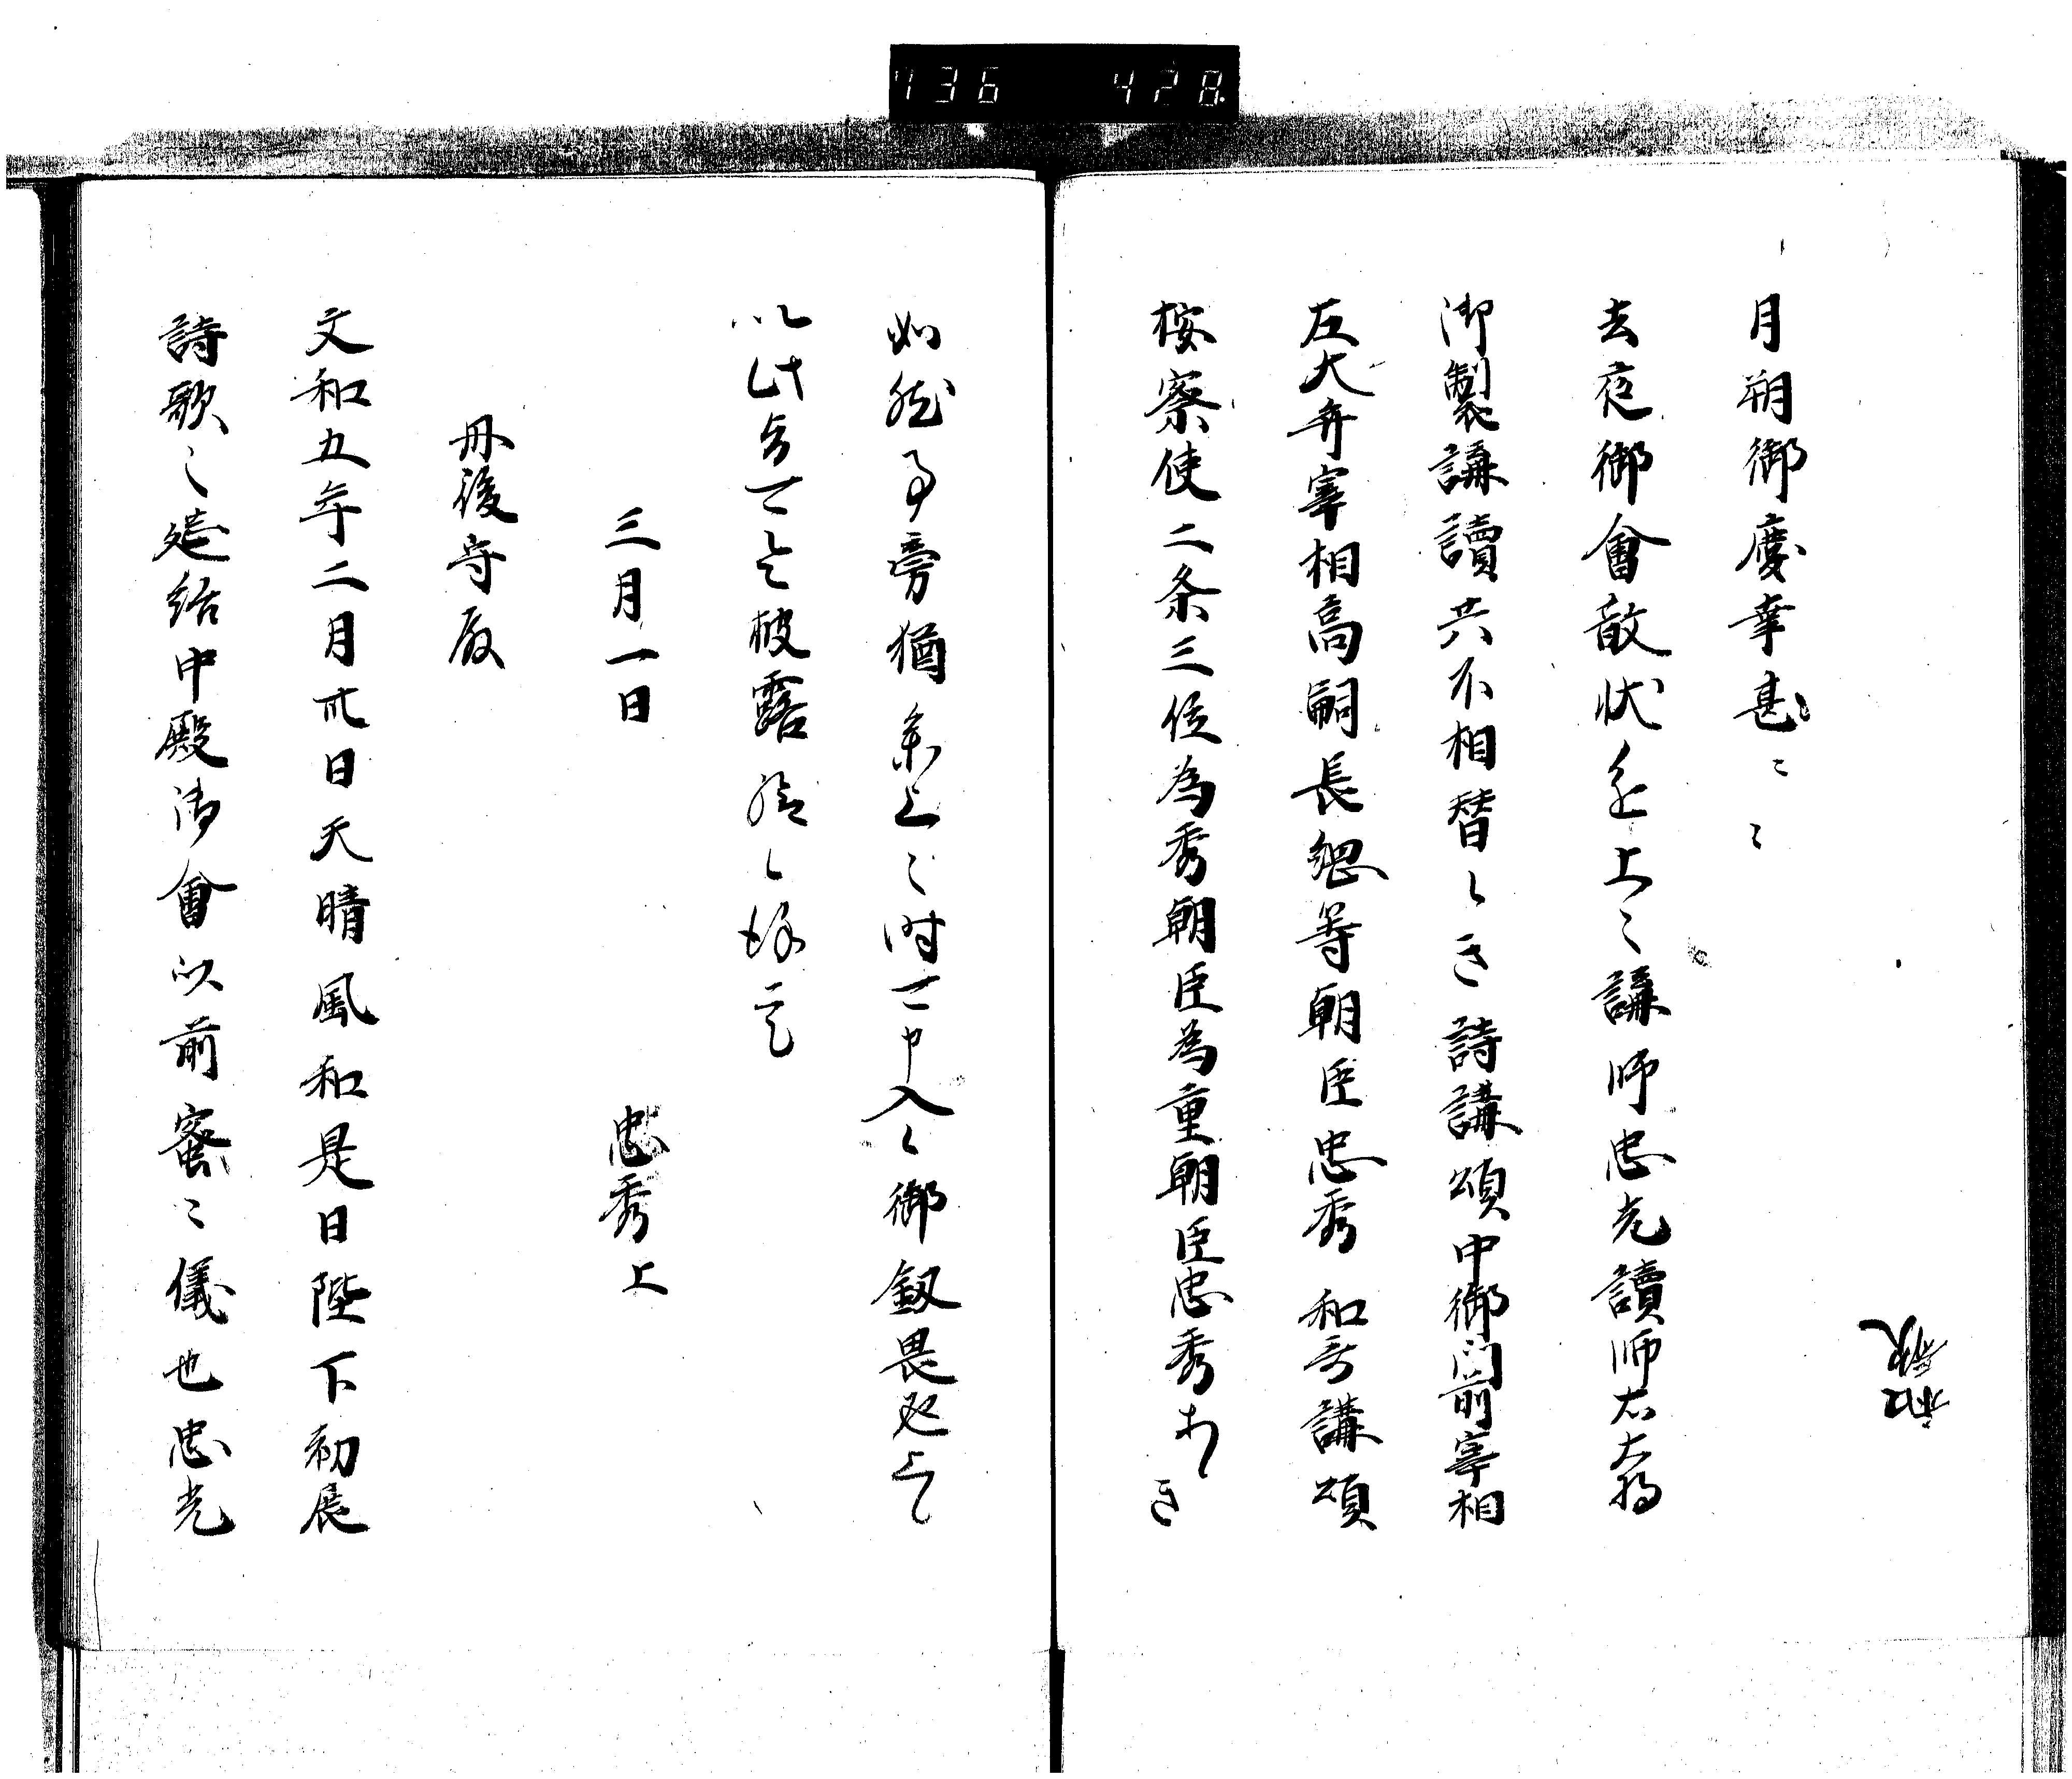 736 428
月朔御慶幸甚〻〻
去夜御會散状進上之講師忠光讀師右大将
御製講讀共不相替候き詩講頌中御門前宰相
左大弁宰相高嗣長綱等朝臣忠秀和哥講頌
按察使二条三位為秀朝臣為重朝臣忠秀候き
如然事旁猶参上之時可申入候御釼畏悦
以此旨可令披露給候
三月一日 忠秀上
丹後守殿
文和五年二月卅日天晴風和是日陛下初展
詩歌之筵給中殿御會以前蜜〻儀也忠光
和歌